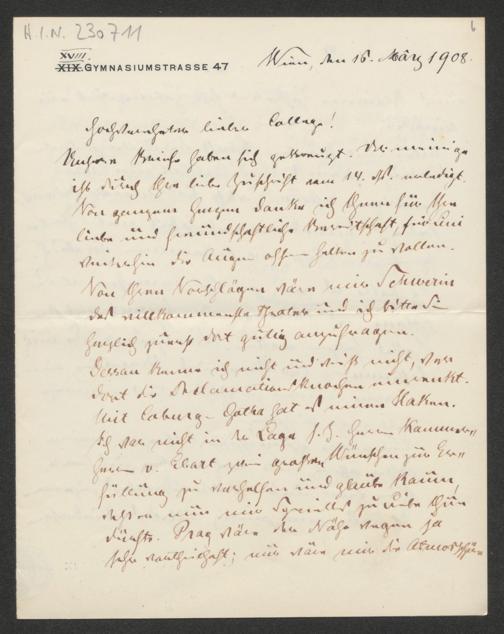 H.I.N. 230711
6
XVIII.
XIX. GYMNASIUMSTRASSE 47
Wien, den 16. März 1908.
Hochverehrter lieber College!
Unsere Briefe haben sich gekreuzt. Der meinige
ist durch Ihre liebe Zuschrift vom 14. ds. erledigt.
Von ganzem Herzen danke ich Ihnen für Ihre
liebe und freundschaftliche Bereitschaft, für mi
weiterhin die Augen offen halten zu wollen.
Von Ihren Vorschlägen wäre mir Schwerin
das willkommenste Theater und ich bitte Sie
herzlich zuerst dort gütig anzufragen.
Dessau kenne ich nicht und weiß nicht, wer
dort die Deklamationsknochen einrenkt.
Mit Coburg-Gotha hat es einen Haken.
Ich war nicht in der Lage s. Z. Herrn Kammer-
herrn v. Ebart zum großen Wünschen zur Er-
füllung zu verhelfen und glaube kaum
daß er nun mir zu Liebe thun
dürfte. Prag wäre der Nähe wegen ja
sehr vortheilhaft; nur wäre mir die Atmosphä-